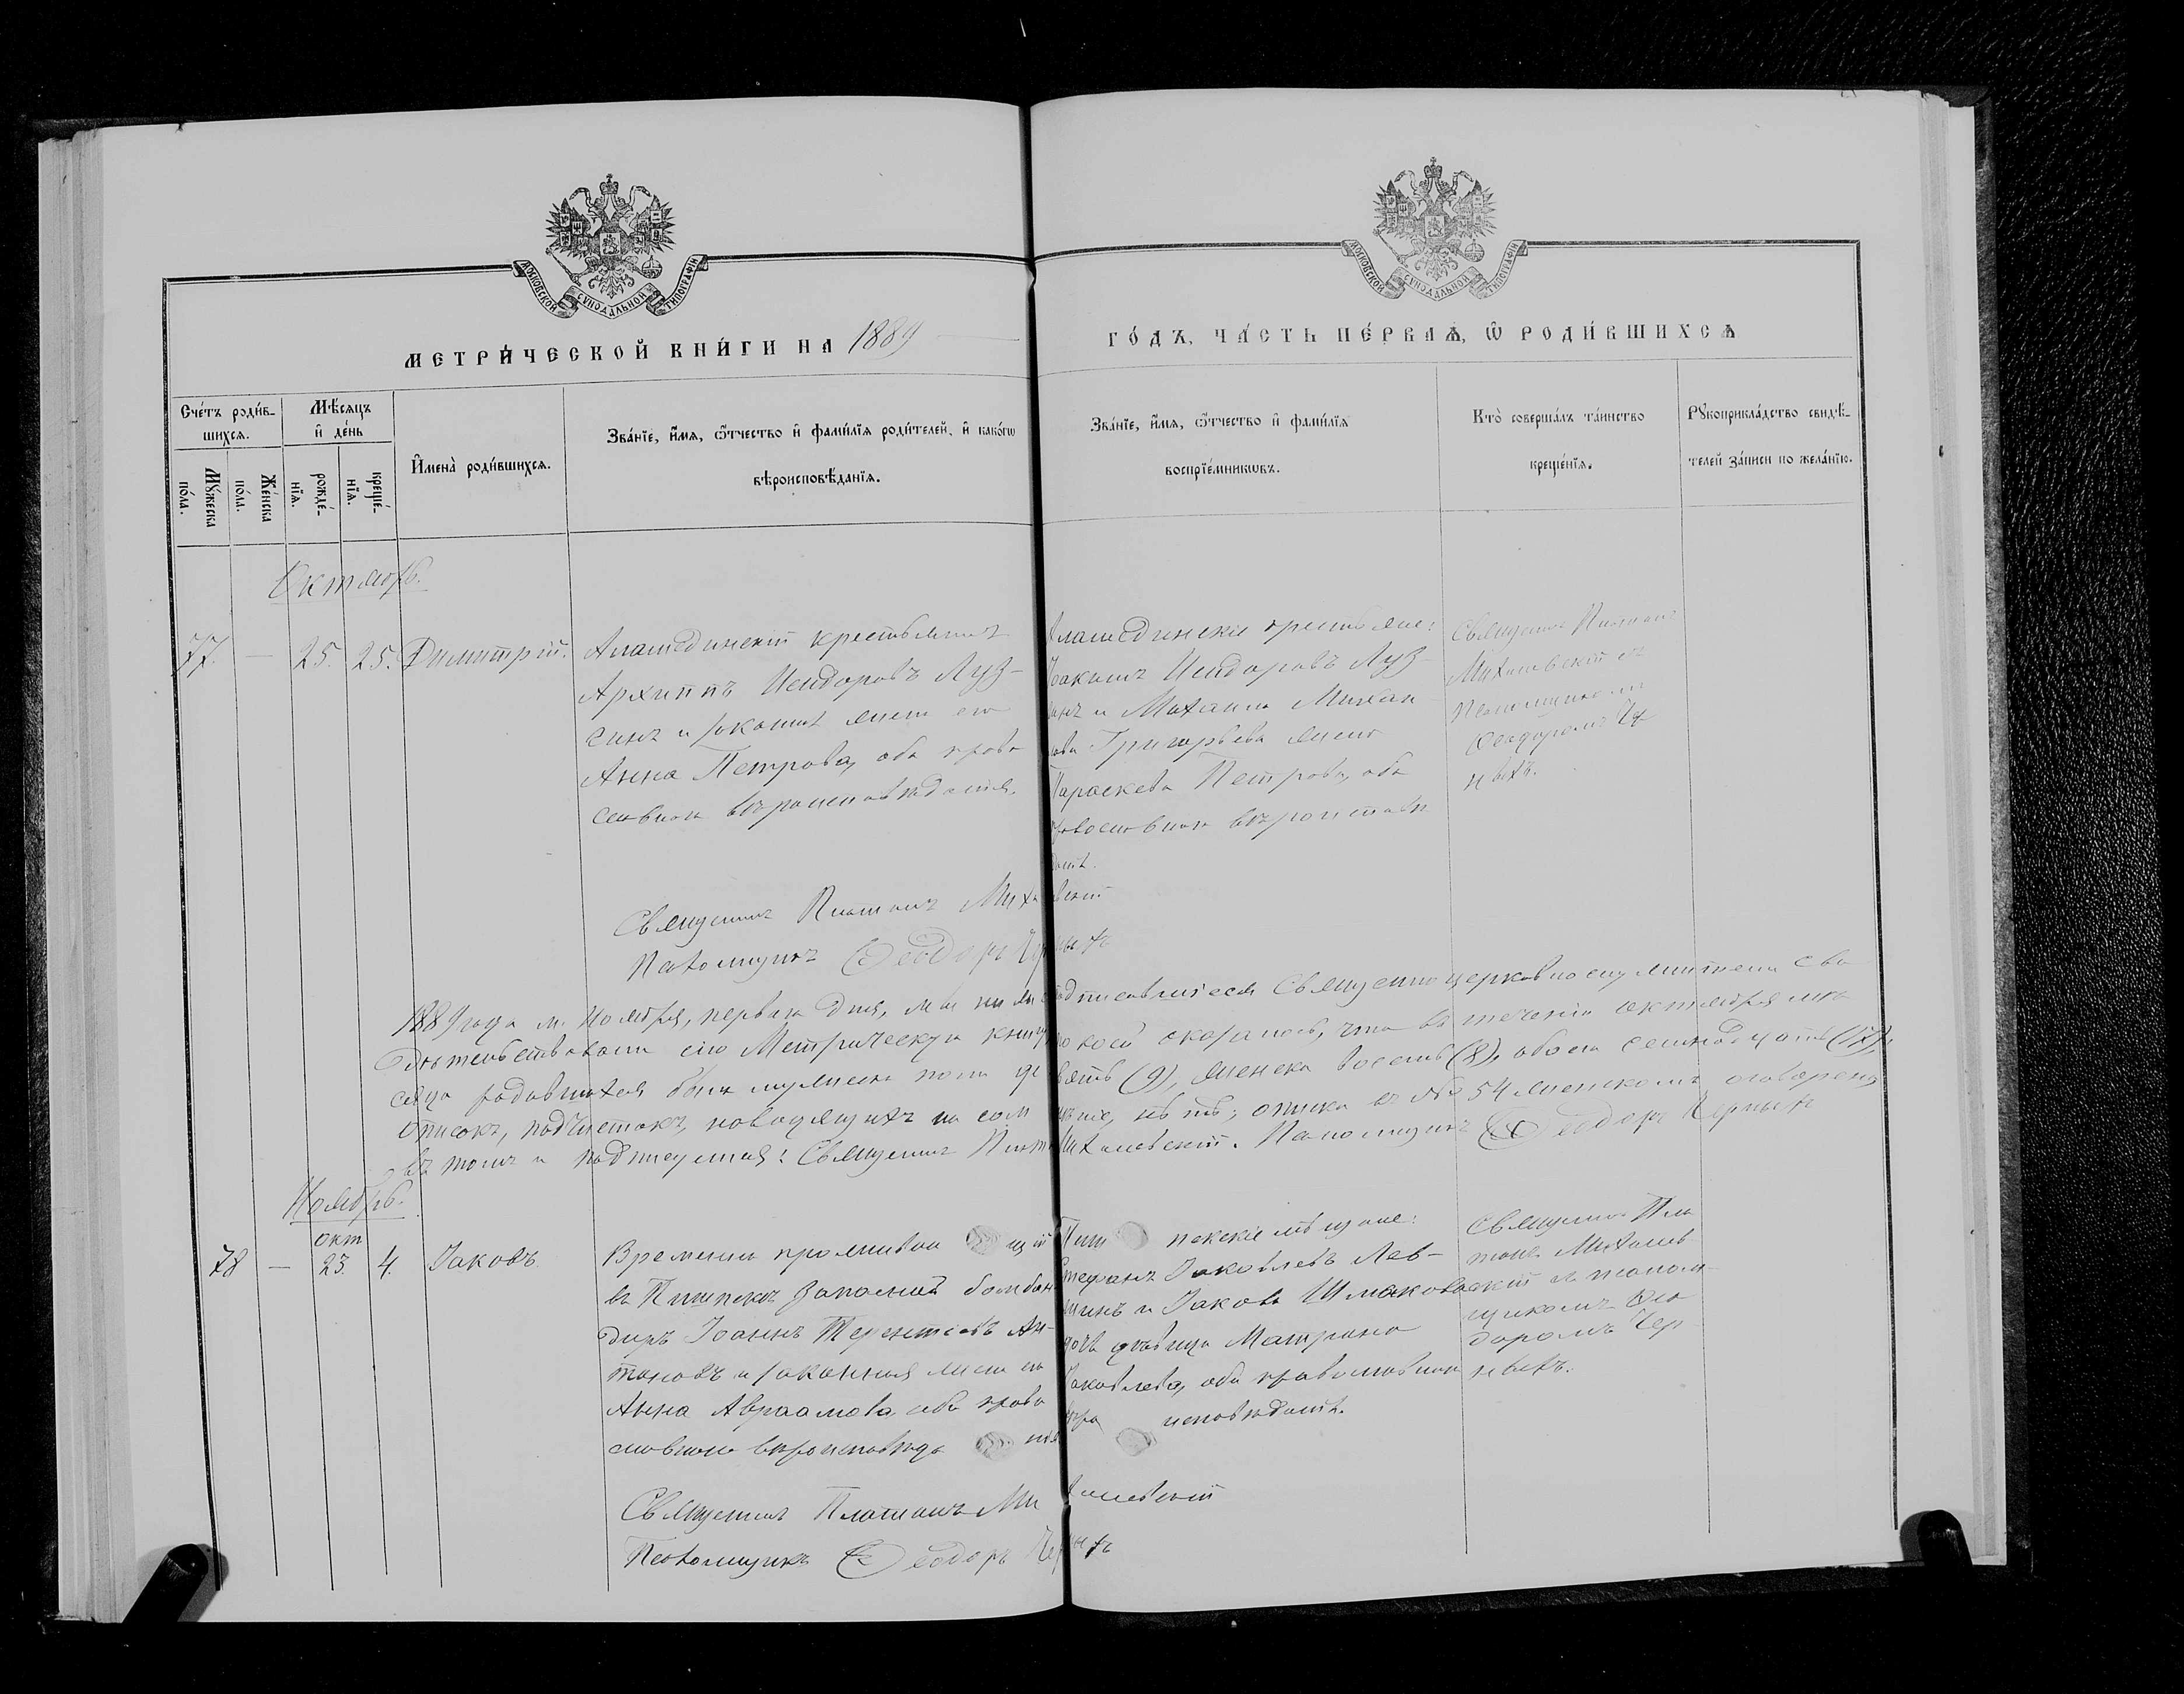 МОСКОВСКОЙ СѴНОДАЛЬНОЙ ТИПОГРАФІИ
МОСКОВСКОЙ СѴНОДАЛЬНОЙ ТИПОГРАФІИ
МЕТРИ́ЧЕСКОЙ КНИ́ГИ НА 1889
ГО́ДЪ, ЧА́СТЬ ПЕ́РВАѦ, Ѡ҆ РОДИ́ВШИХСѦ
Сче́тъ роди́в-
шихсѧ.
Мѣ́сѧцъ
и҆ де́нь
Мꙋ́жеска
по́ла.
Же́нска
по́ла.
рожде́-
нїѧ.
креще́-
нїѧ.
И҆мена̀ роди́вшихсѧ.
Зва́нїе, и҆́мѧ, ѻ҆́тчество и҆ фами́лїѧ роди́телей, и҆ како́гѡ
вѣроисповѣ́данїѧ.
Зва́нїе, и҆́мѧ, ѻ҆́тчество и҆ фами́лїѧ
воспрїе́мникѡвъ.
Кто̀ соверша́лъ та́инство
креще́нїѧ.
Рꙋкоприкла́дство свидѣ́-
телей за́писи по жела́нїю.
Октябрь.
77. — 25. 25. Димитрій.
крестьянинъ
Архиппъ Исидоровъ Луз-
женъ и законная жена его
Анна Петрова, оба право
славнаго вѣроисповѣданія.
крестьяне:
Исидоровъ Луз-
и Михаила
Григорьева жена
Параскева Петрова, оба
православнаго вѣроисповѣ
даніѧ.
Священникъ Платонъ
Михалевскій съ
псаломщикомъ
Ѳеодоромъ Чер
ныхъ.
Священникъ Платонъ Михалевскій
Псаломщикъ Ѳеодоръ Черныхъ
1889 года м. Ноября, перваго дня, мы нижеподписавшіеся Священноцерковнослужители сви
дѣтельствовали сію Метрическую книгу по коей оказалось, что въ теченіи октября мѣ
сяца родившихся было мужеска пола девять (9), женска восемь (8), обоего семнадцать (17);
описокъ, подчистокъ, наводящихъ на сомнѣніе, нѣтъ; описка въ № 54 женскомъ оговорена,
въ томъ и подписуемся: Священникъ Платонъ Михалевскій. Псаломщикъ Ѳеодоръ Черныхъ
Ноябрь.
окт
78 — 23. 4. Іаковъ
Временно проживающій
въ Пишпекѣ запасный бомбар-
диръ Іоаннъ Терентіевъ Ан-
тоновъ и законная жена его
Анна Авраамова, оба право
славнаго вѣроисповѣданія.
Пишпекскіе мѣщане:
Стефанъ Іаковлевъ Лев-
шинъ и Іакова Шмакова
дочь дѣвица Матрона
Іаковлева, оба православнаго
вѣроисповѣданія.
Священникъ Пла
тонъ Михалев
скій съ псалом-
щикомъ Ѳео
доромъ Чер-
ныхъ.
Священникъ Платонъ Михалевскій
Псаломщикъ Ѳеодоръ Черныхъ